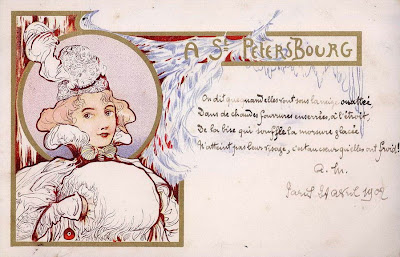 A St PETERSBOURG
On dit que quand elles vont sous la neige ouatée
Dans de chaudes fourrures enserrées, à l'étroit,
De la bise qui souffle la morsure glacée
N'atteint pas leur visage, c'est au cœur qu'elles ont froid!
A. M.
Paris avril 1902